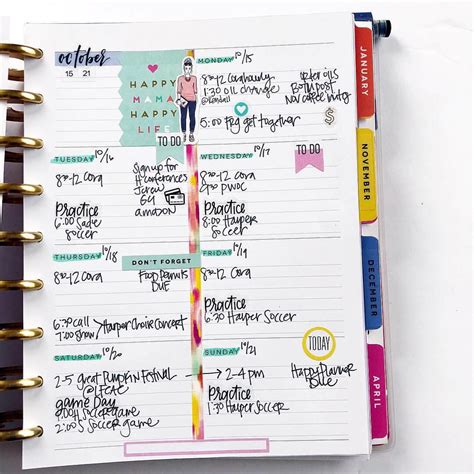 october
15 21
HAPPY
MAMA
HAPPY
LIFE
MONDAY 10/15
8-12 Cora
1:30 oil change
@Kendall
5:00 PFG get together
$
TO DO
TUESDAY 10/16
8-12 Cora
Practice
6:00 Sadie
Soccer
Sign up for
conferences
Screw
64
amazon
WEDNESDAY 10/17
8-12 Cora
PWOC
Practice
8:00 Harper
Soccer
TO DO
THURSDAY 10/18
8-12 Cora
6:30 call
7:00 Show
Harper Choir Concert
DON'T FORGET
Food Donuts
DUE
FRIDAY 10/19
8-12 Cora
Practice
6:30 Harper Soccer
SATURDAY 10/20
2-5 great Pumpkin Festival
game Day
Soccer game
2:00 S Soccer game
SUNDAY 10/21
2-4 pm
Practice
1:30 Harper Soccer
TODAY
Happy Planner
JANUARY
NOVEMBER
DECEMBER